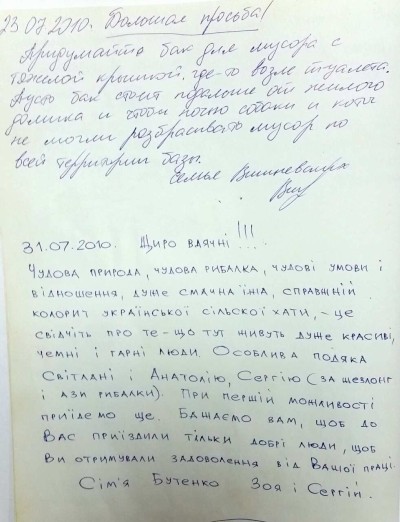 23.07.2010. Большая просьба!
Придумайте бак для мусора с
тяжелой крышкой где-то возле туалета.
Пусть бак стоит подальше от жилого
домика и чтобы ночью собаки и коты
не могли разбрасывать мусор по
всей территории базы.
Семья
31.07.2010. Щиро вдячні!!!
Чудова природа, чудова рибалка, чудові умови і
відношення, дуже смачна їжа, справжній
колорит української сільскої хати, - це
свідчіть про те - що тут живуть дуже красиві,
чемні і гарні люди. Особлива подяка
Світлані і Анатолію, Сергію (за шезлонг
і ази рибалки). При першій можливості
приїдемо ще. Бащаємо вам, щоб до
Вас приїздили тільки добрі люди, щоб
Ви отримували задоволення від Вашої праці.
Сім'я Бутенко Зоя і Сергій.